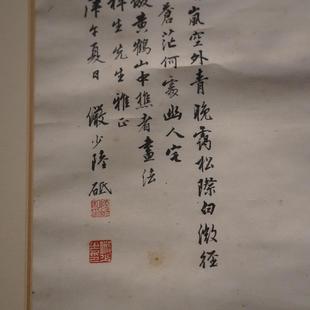 嵐空外青晚靄松際白微徑
蒼茫何處幽人宅
黃鶴山中樵者畫法
生先生雅正
午夏日 儼少陸砥